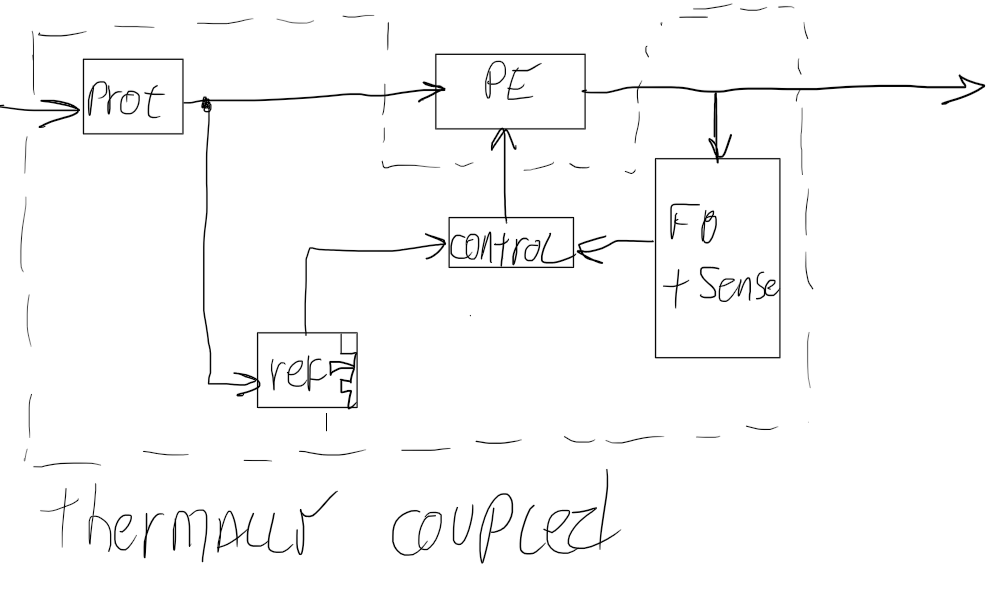 Prot
PE
control
FB
+ Sense
ref
thermally coupled